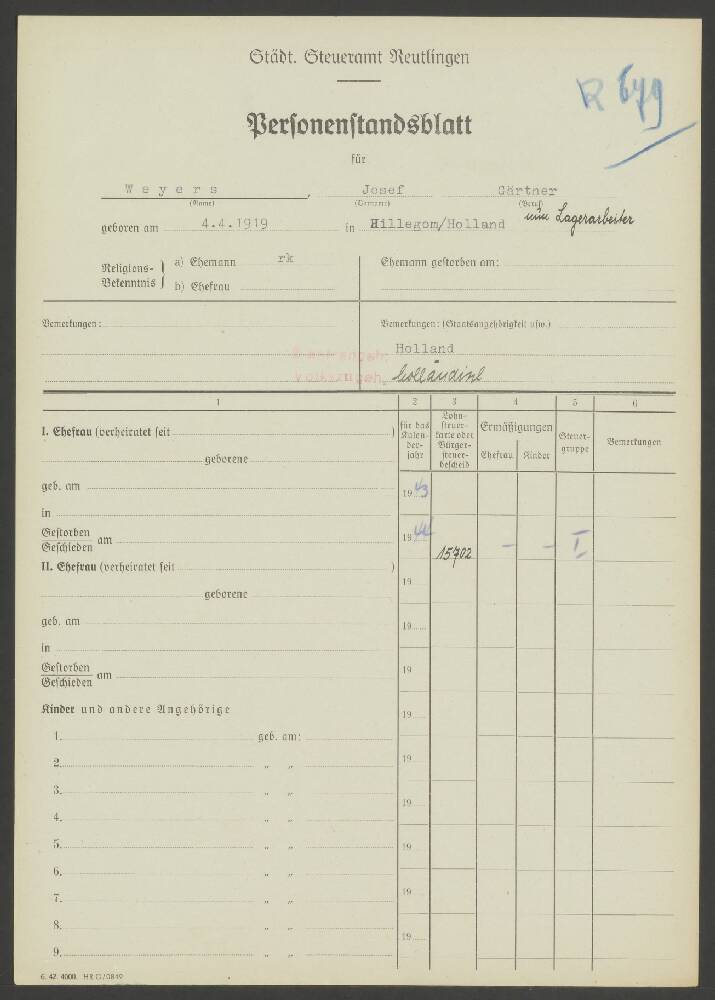 Städt. Steueramt Reutlingen
R 679
Personenstandsblatt
für
Weyers, Josef Gärtner
(Name) (Vorname) (Beruf)
nun Lagerarbeiter
geboren am 4.4.1919 in Hillegom/Holland
Religions-Bekenntnis } a) Ehemann rk
b) Ehefrau
Ehemann gestorben am:
Bemerkungen:
Bemerkungen: (Staatsangehörigkeit usw.)
Staatsangeh. Holland
Volkszugeh. holländisch
1 2 3 4 5 6
für das Kalenderjahr
Lohnsteuerkarte oder Bürgersteuerbescheid
Ermäßigungen
Ehefrau Kinder
Steuergruppe
Bemerkungen
I. Ehefrau (verheiratet seit )
geborene
geb. am
1943
in
Gestorben
Geschieden am
1944 15702 - - I
II. Ehefrau (verheiratet seit )
19
geborene
geb. am
19
in
Gestorben
Geschieden am
19
Kinder und andere Angehörige
19
1. geb. am:
2. " " 19
3. " "
19
4. " "
5. " " 19
6. " "
7. " " 19
8. " "
19
9. " "
6. 42. 4000. HRG/0849